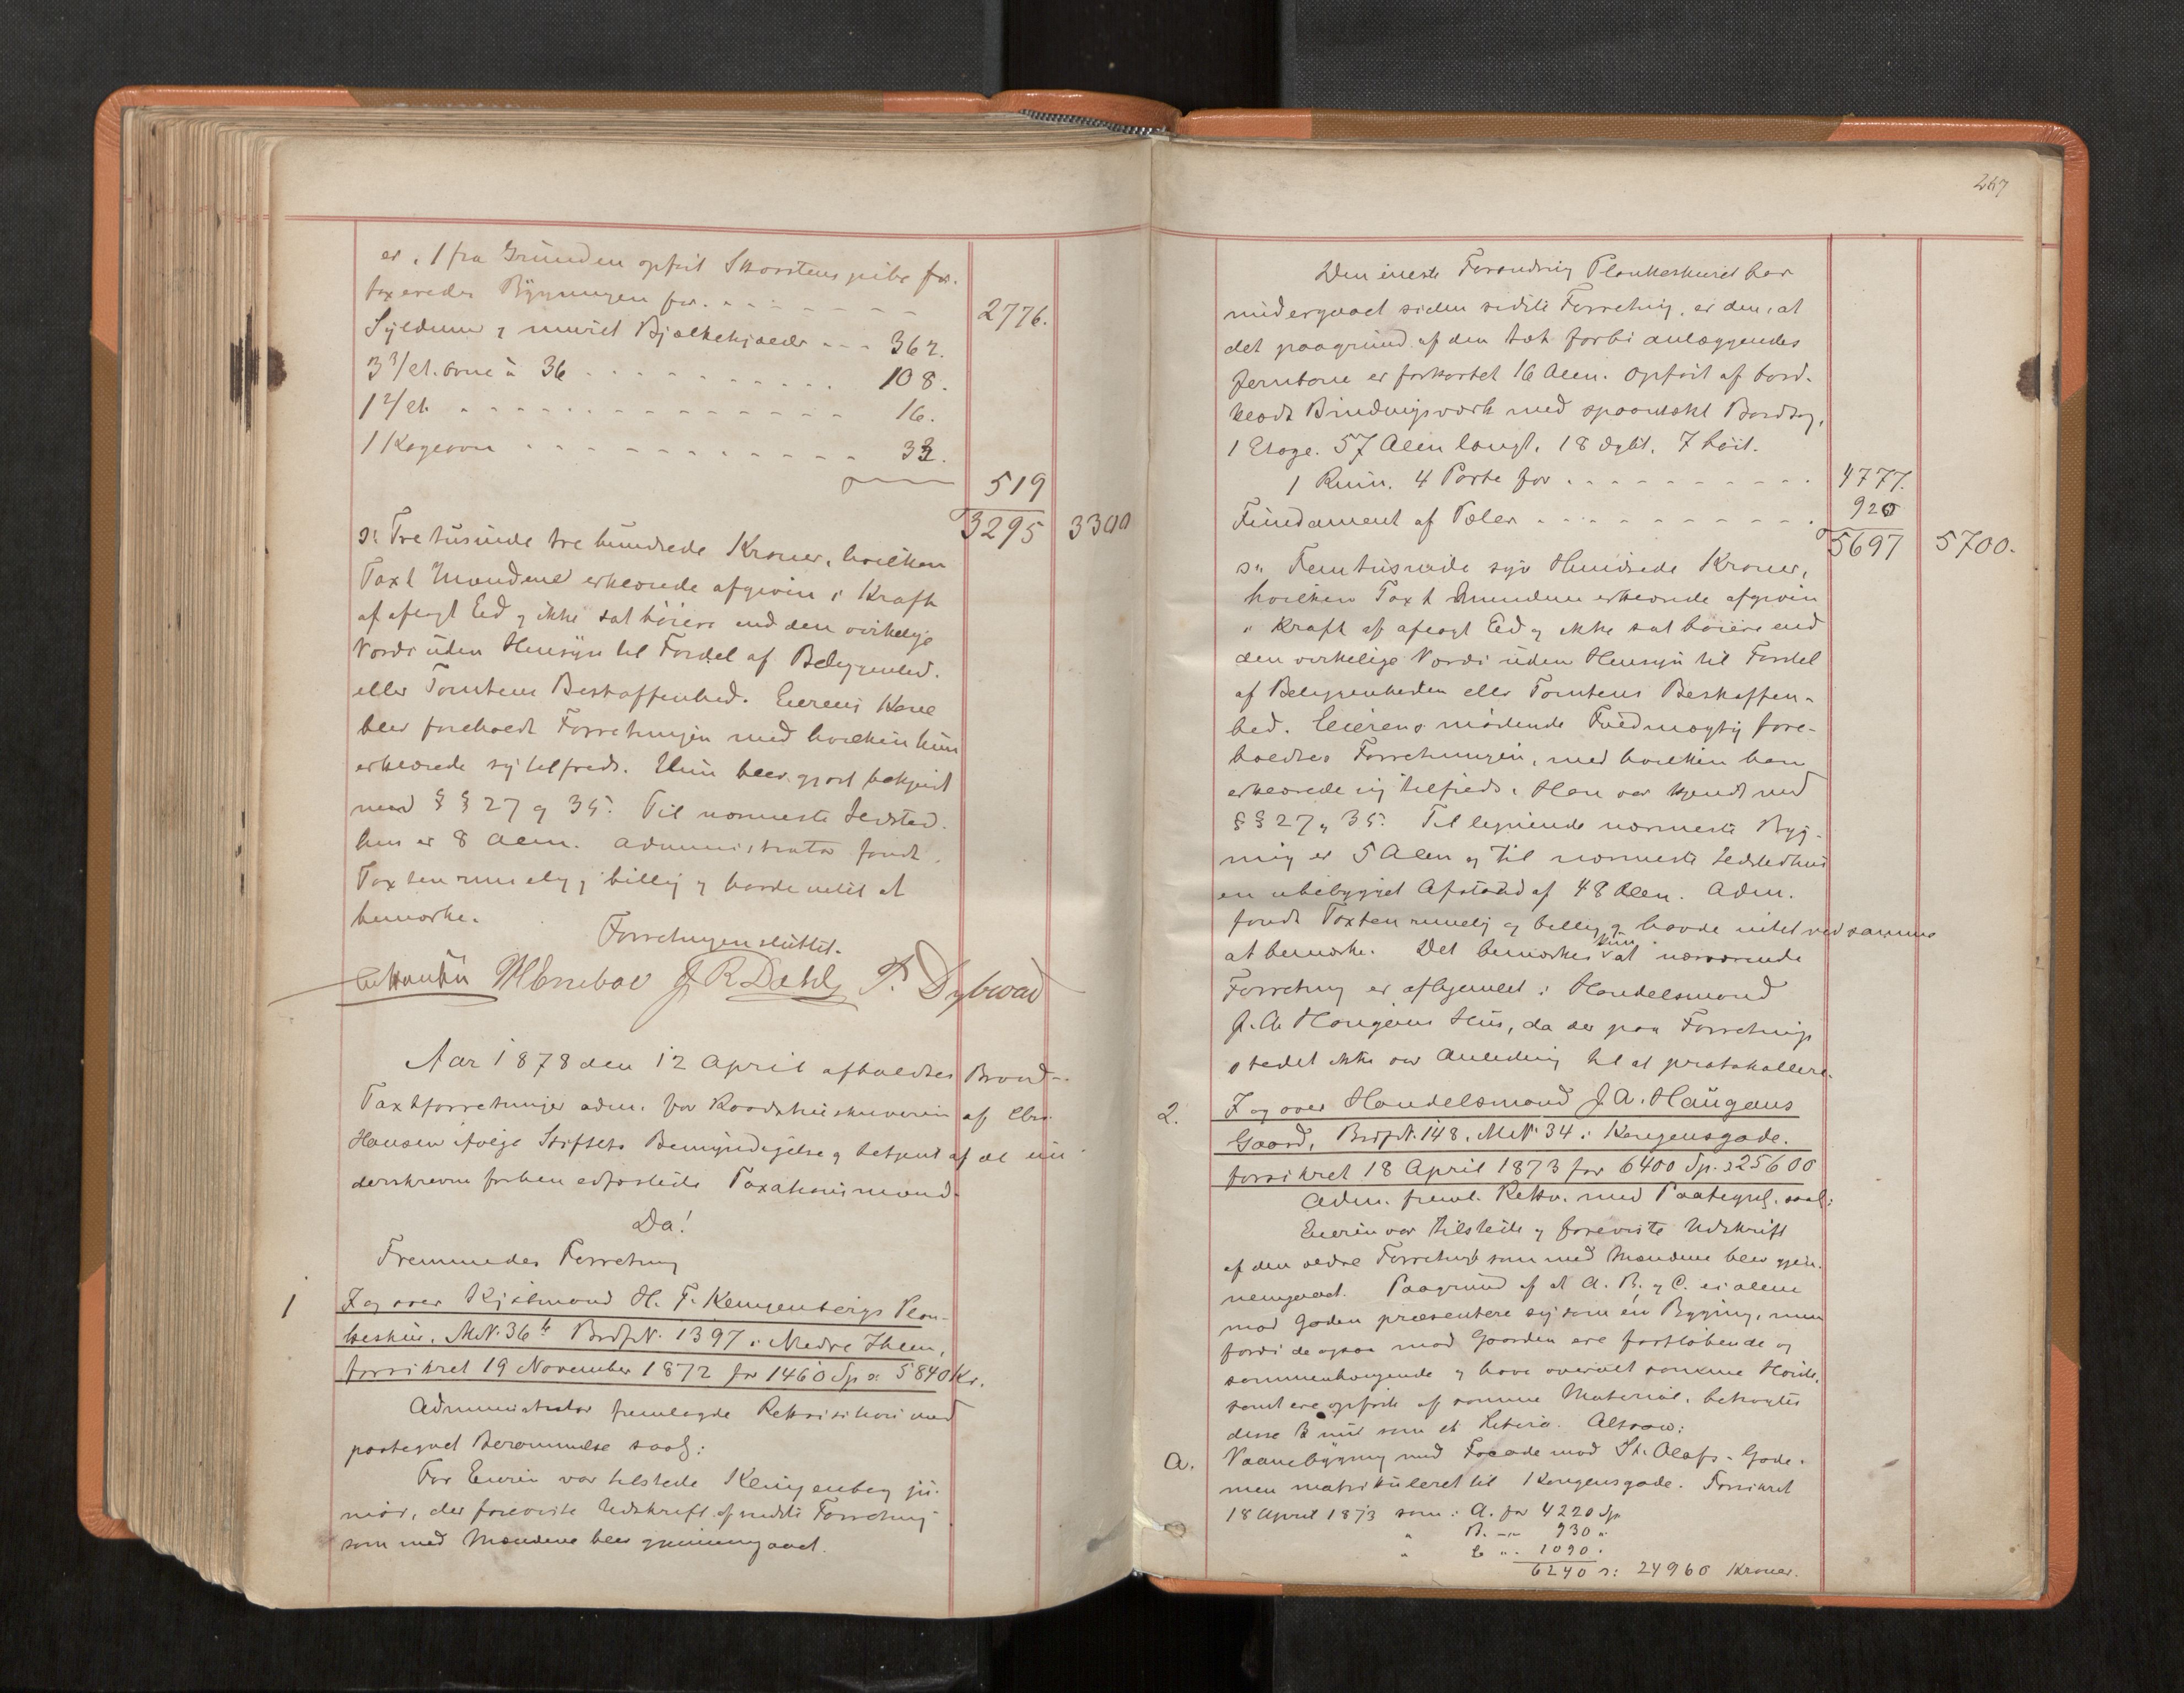 er, 1 fra Grunden opført Skorstenspibe for.
taxeredes Bygningen for - - - - - - - 2776.
Syldmur og muret Bjælkekjælder - - - 362.
3 3/et. ovne à 36 - - - - - - - - - - 108.
1 2/et. - - - - - - - - - - - - - - 16.
1 Kogeovn - - - - - - - - - - - - 33.
519
3295 3300
ɔ: Tretusinde tre hundrede Kroner, hvilken
Taxt Mændene erklærede afgiven i Kraft
af aflagt Eed og ikke sat høiere end den virkelige
Værdi uden Hensyn til Fordel af Beliggenhed.
eller Tomtens Beskaffenhed. Eierens Kone
blev foreholdt Forretningen med hvilken hun
erklærede sig tilfreds. Hun blev gjort bekjendt
med § § 27 og 35. Til nærmeste Ildsted-
hus er 8 Alen. Administrator fandt
Taxten rimelig og billig og havde intet at
bemærke.
Forretningen sluttet.
J R Dahl P. Dybwad
Aar 1878 den 12 April afholdtes Brand-
Taxtforretninger adm. for Raadstueskriveren af Chr.
Hansen ifølge Stiftets Bemyndigelse og betjent af de un
derskrevne forhen edfæstede Taxationsmænd.
Da!
Fremmedes Forretning
1 I og over Kjøbmand H. F. Klingenbergs Plan-
keskur, M.N. 36b Brdf.N. 1397 i Nedre Ihlen,
forsikret 19 November 1872 for 1460 Sp ɔ: 5840 Kr.
Administrator fremlagde Rekvisition med
paategnet Berammelse saal:
For Eieren var tilstede Klingenberg ju-
niør, der foreviste Udskrift af sidste Forretning
som med Mændene blev gjennemgaaet.
267
Den eneste Forandring Plankeskuret har
undergaaet siden sidste Forretning, er den, at
det paagrund af den tæt forbi anlæggendes
Jernbane er forkortet 16 Alen. Opført af bord-
klædt Bindingsværk med spaantækt Bordtag,
1 Etage. 57 Alen langt, 18 dybt, 7 høit.
1 Rum. 4 Porte for - - - - - - - - - - 4777.
Fundament af Pæler - - - - - - - - - - 920
5697 5700.
ɔ: Femtusinde syv Hundrede Kroner,
hvilken Taxt Mændene erklærede afgiven
i Kraft af aflagt Eed og ikke sat høiere end
den virkelige Værdi uden Hensyn til Fordel
af Beliggenheden eller Tomtens Beskaffen-
hed. Eierens mødende Fuldmægtig fore-
holdtes Forretningen, med hvilken han
erklærede sig tilfreds. Han var kjendt med
§ § 27 og 35. Til lignende nærmeste Byg-
ning er 5 Alen og til nærmeste Ildstedhus
en ubebygget Afstand af 48 Alen. Adm.
fandt Taxten rimelig og billig og havde intet ved samme
at bemærke. Det bemærkes kun at nærværende
Forretning er afhjemlet i Handelsmand
J. A. Haugans Hus, da der paa Forretnings
stedet ikke var Anledning til at protokollere.
2. I og over Handelsmand J. A. Haugans
Gaard, Brdf.N. 148, M.N. 34 i Kongensgade.
forsikret 18 April 1873 for 6400 Sp. ɔ 25600
Adm. freml. Rekv. med Paategn. saal:
Eieren var tilstede og foreviste Udskrift
af den ældre Forretning som med Mændene blev gjen-
nemgaaet. Paagrund af at A. B. og C. ei alene
mod Gaden præsentere sig som én Bygning, men
fordi de ogsaa mod Gaarden ere fortløbende og
sammenhængende og have overalt samme Høide,
samt ere opførte af samme Material, betragtes
disse 3 nu som et Litera. Altsaa:
a. Vaanebygning med Facade mod St. Olafs-Gade.
men matrikuleret til Kongensgade. Forsikret
18 April 1873 som: A. for 4220 Sp.
" B. -"- 930 "
" C " 1090 "
6240 ɔ: 24960 Kroner.